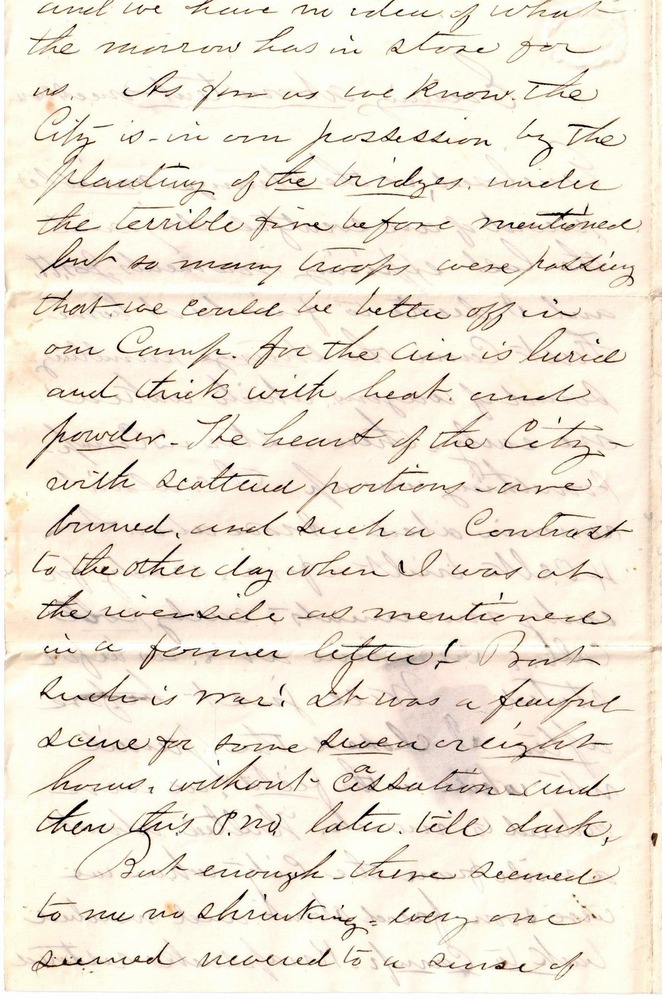 and we have no idea of what
the morrow has in store for
us. As far as we know. the
City is in our possession by the
planting of the bridges. under
the terrible fire before mentioned
but so many troops were passing
that we could be better off in
our Camp. for the air is lurid
and thick with heat. and
powder. The heart of the City -
with scattered portions - are
burned. and such a Contrast
to the other day when I was at
the riverside as mentioned
in a former letter! But
such is war! It was a fearful
scene for some seven or eight
hours, without a cessation - and
then this P.M. later. till dark.
But enough - there seemed
to me no shrinking - every one
seemed nerved to a sense of